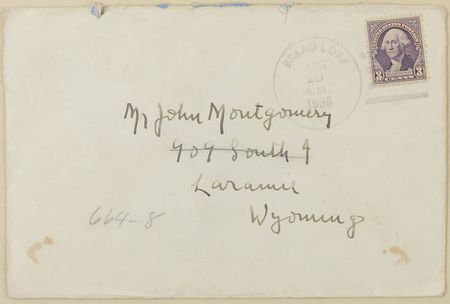 BREAD LOAF
AUG
20
A.M.
1938
UNITED STATES POSTAGE
3 3
CENTS
Mr John Montgomery
909 South 9
Laramie
Wyoming
664-8